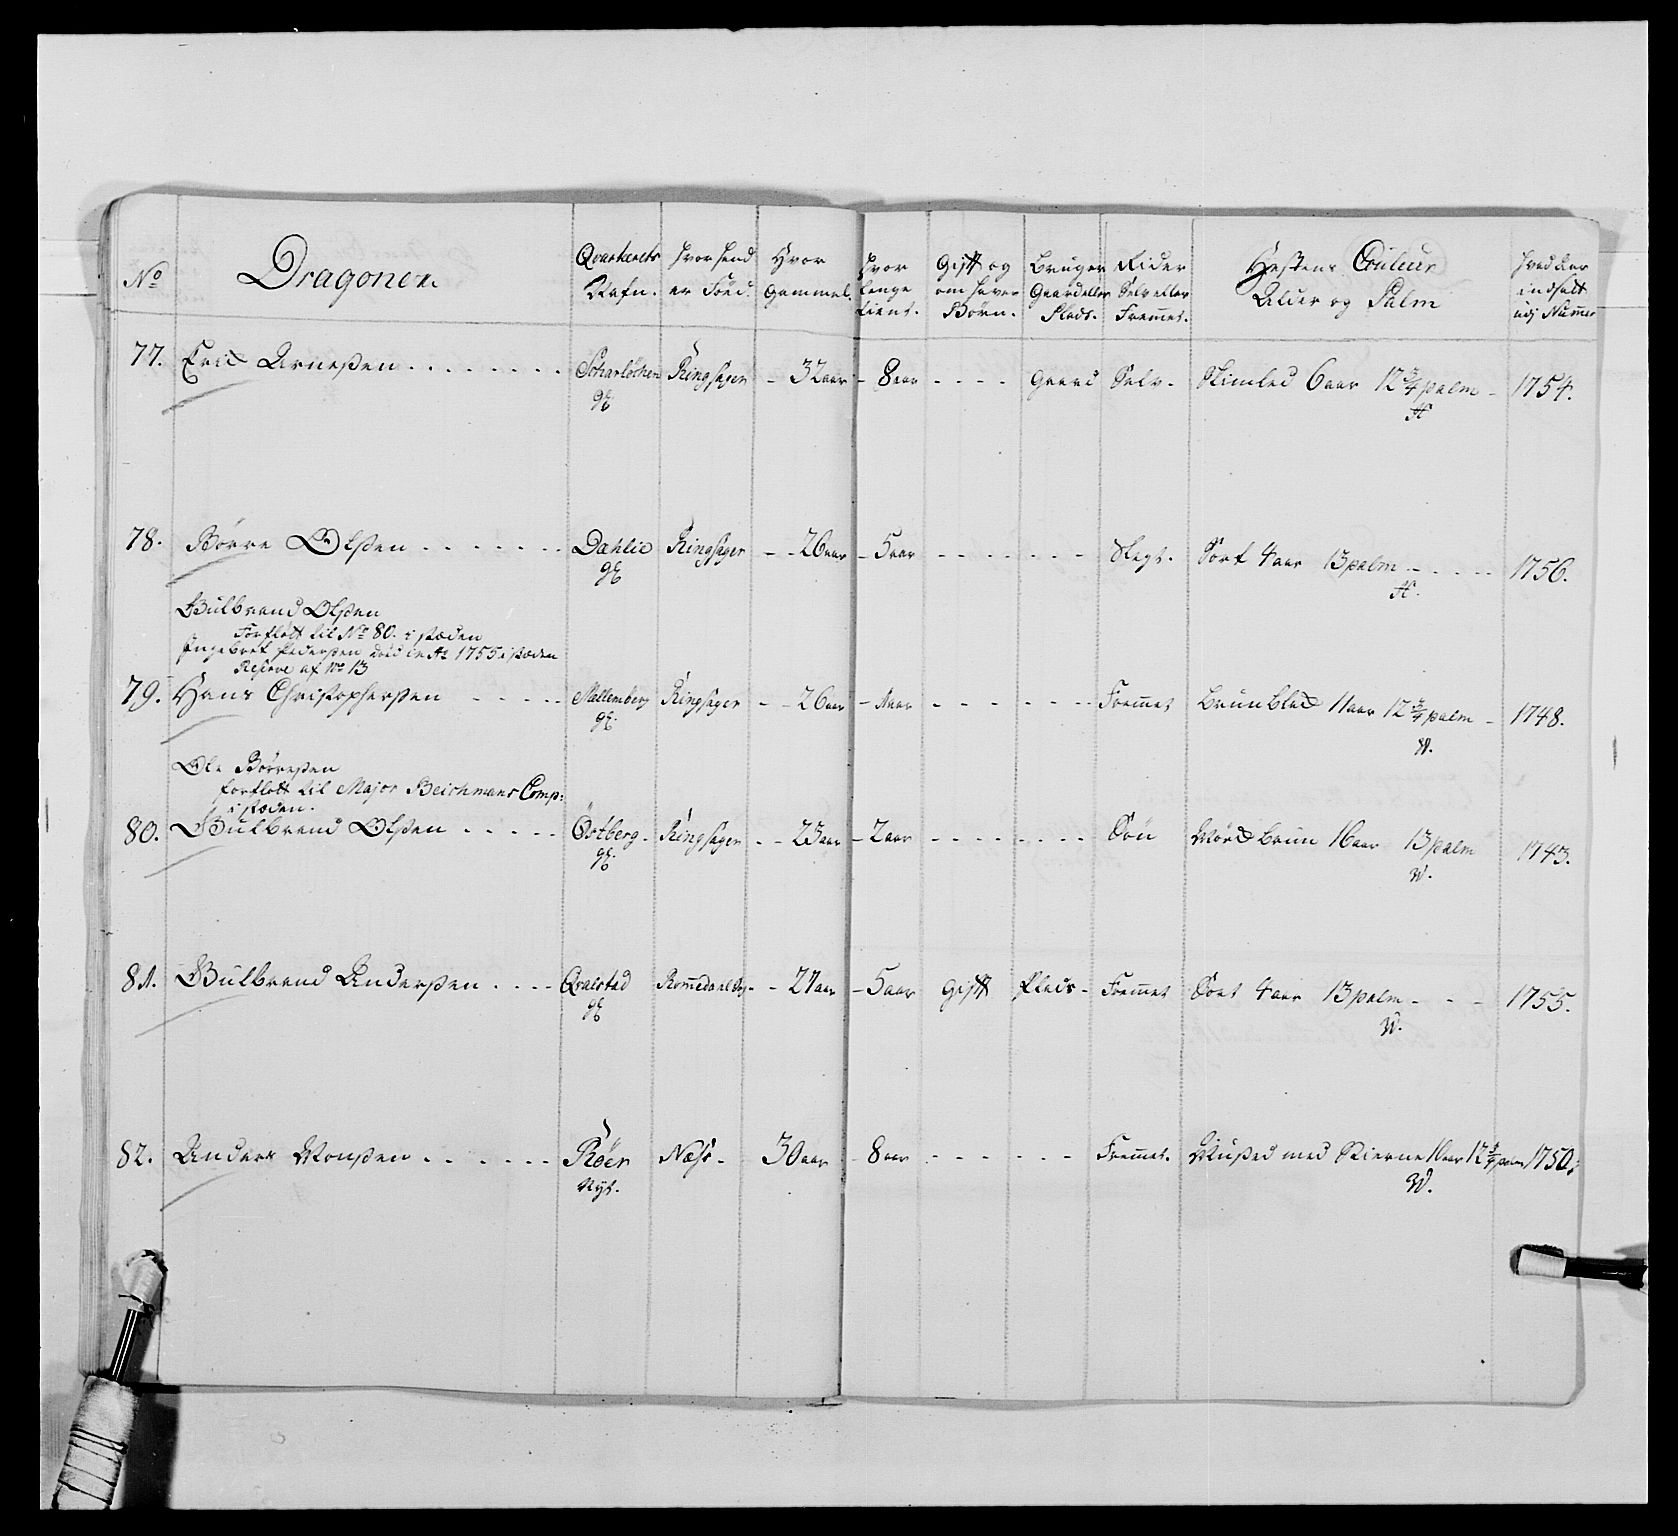 No Dragoner. Qvarterets Nafn. Hvor hand er Föed. Hvor Gammel. Hvor lenge tient. Gift og om haver Börn. Bruger Gaard eller Plads. Rider Selv eller Fremmet. Hestens Couleur Alder og Palm Hvad Aar indsatt udj Nummer
77. Eric Arnesen . . . . . . . . Ringsager - 32 aar - 8 aar - - - - Gaard Selv - Skimled 6 aar 12 3/4 palm - 1754.
gl H
78. Börre Olsen . . . . . . . Dæhlie Ringsager - - 26 aar - 5 aar - - - - - - - Slegt. Sort 4 aar 13 palm - - - - - 1756.
gl H.
Gulbrand Olsen
Forflött til No 80. i stæden
Ingebret Pedersen död in Ao 1755 i stæden
Reserve af No 13
79. Hans Christophersen - - - - - Mællemberg Ringsager - - 26 aar - aar - - - - - - - Fremmet Brunblac 11 aar 12 3/4 palm - 1748.
gl. W.
Ole Börresen
forflött til Major Beichmans Comp:
i stæden.
80. Gulbrand Olsen . . . . . Östberg - Ringsager - - 23 aar - 2 aar - - - - - - - - Sön Mörcbrun 16 aar 13 palm 1743.
gl. W.
81. Gulbrand Andersen . . . . Qvalstad Romedahl - - 27 aar - 5 aar Gift Plads - Fremmet Sort 4 aar 13 palm - - - 1755.
gl W.
82. Anders Monsen . . . . . . Röer Næss - 30 aar - 8 aar - - - - - - Fremmet. Mused med Stierne 10 aar 12 3/4 palm 1750.
Nyt. W.